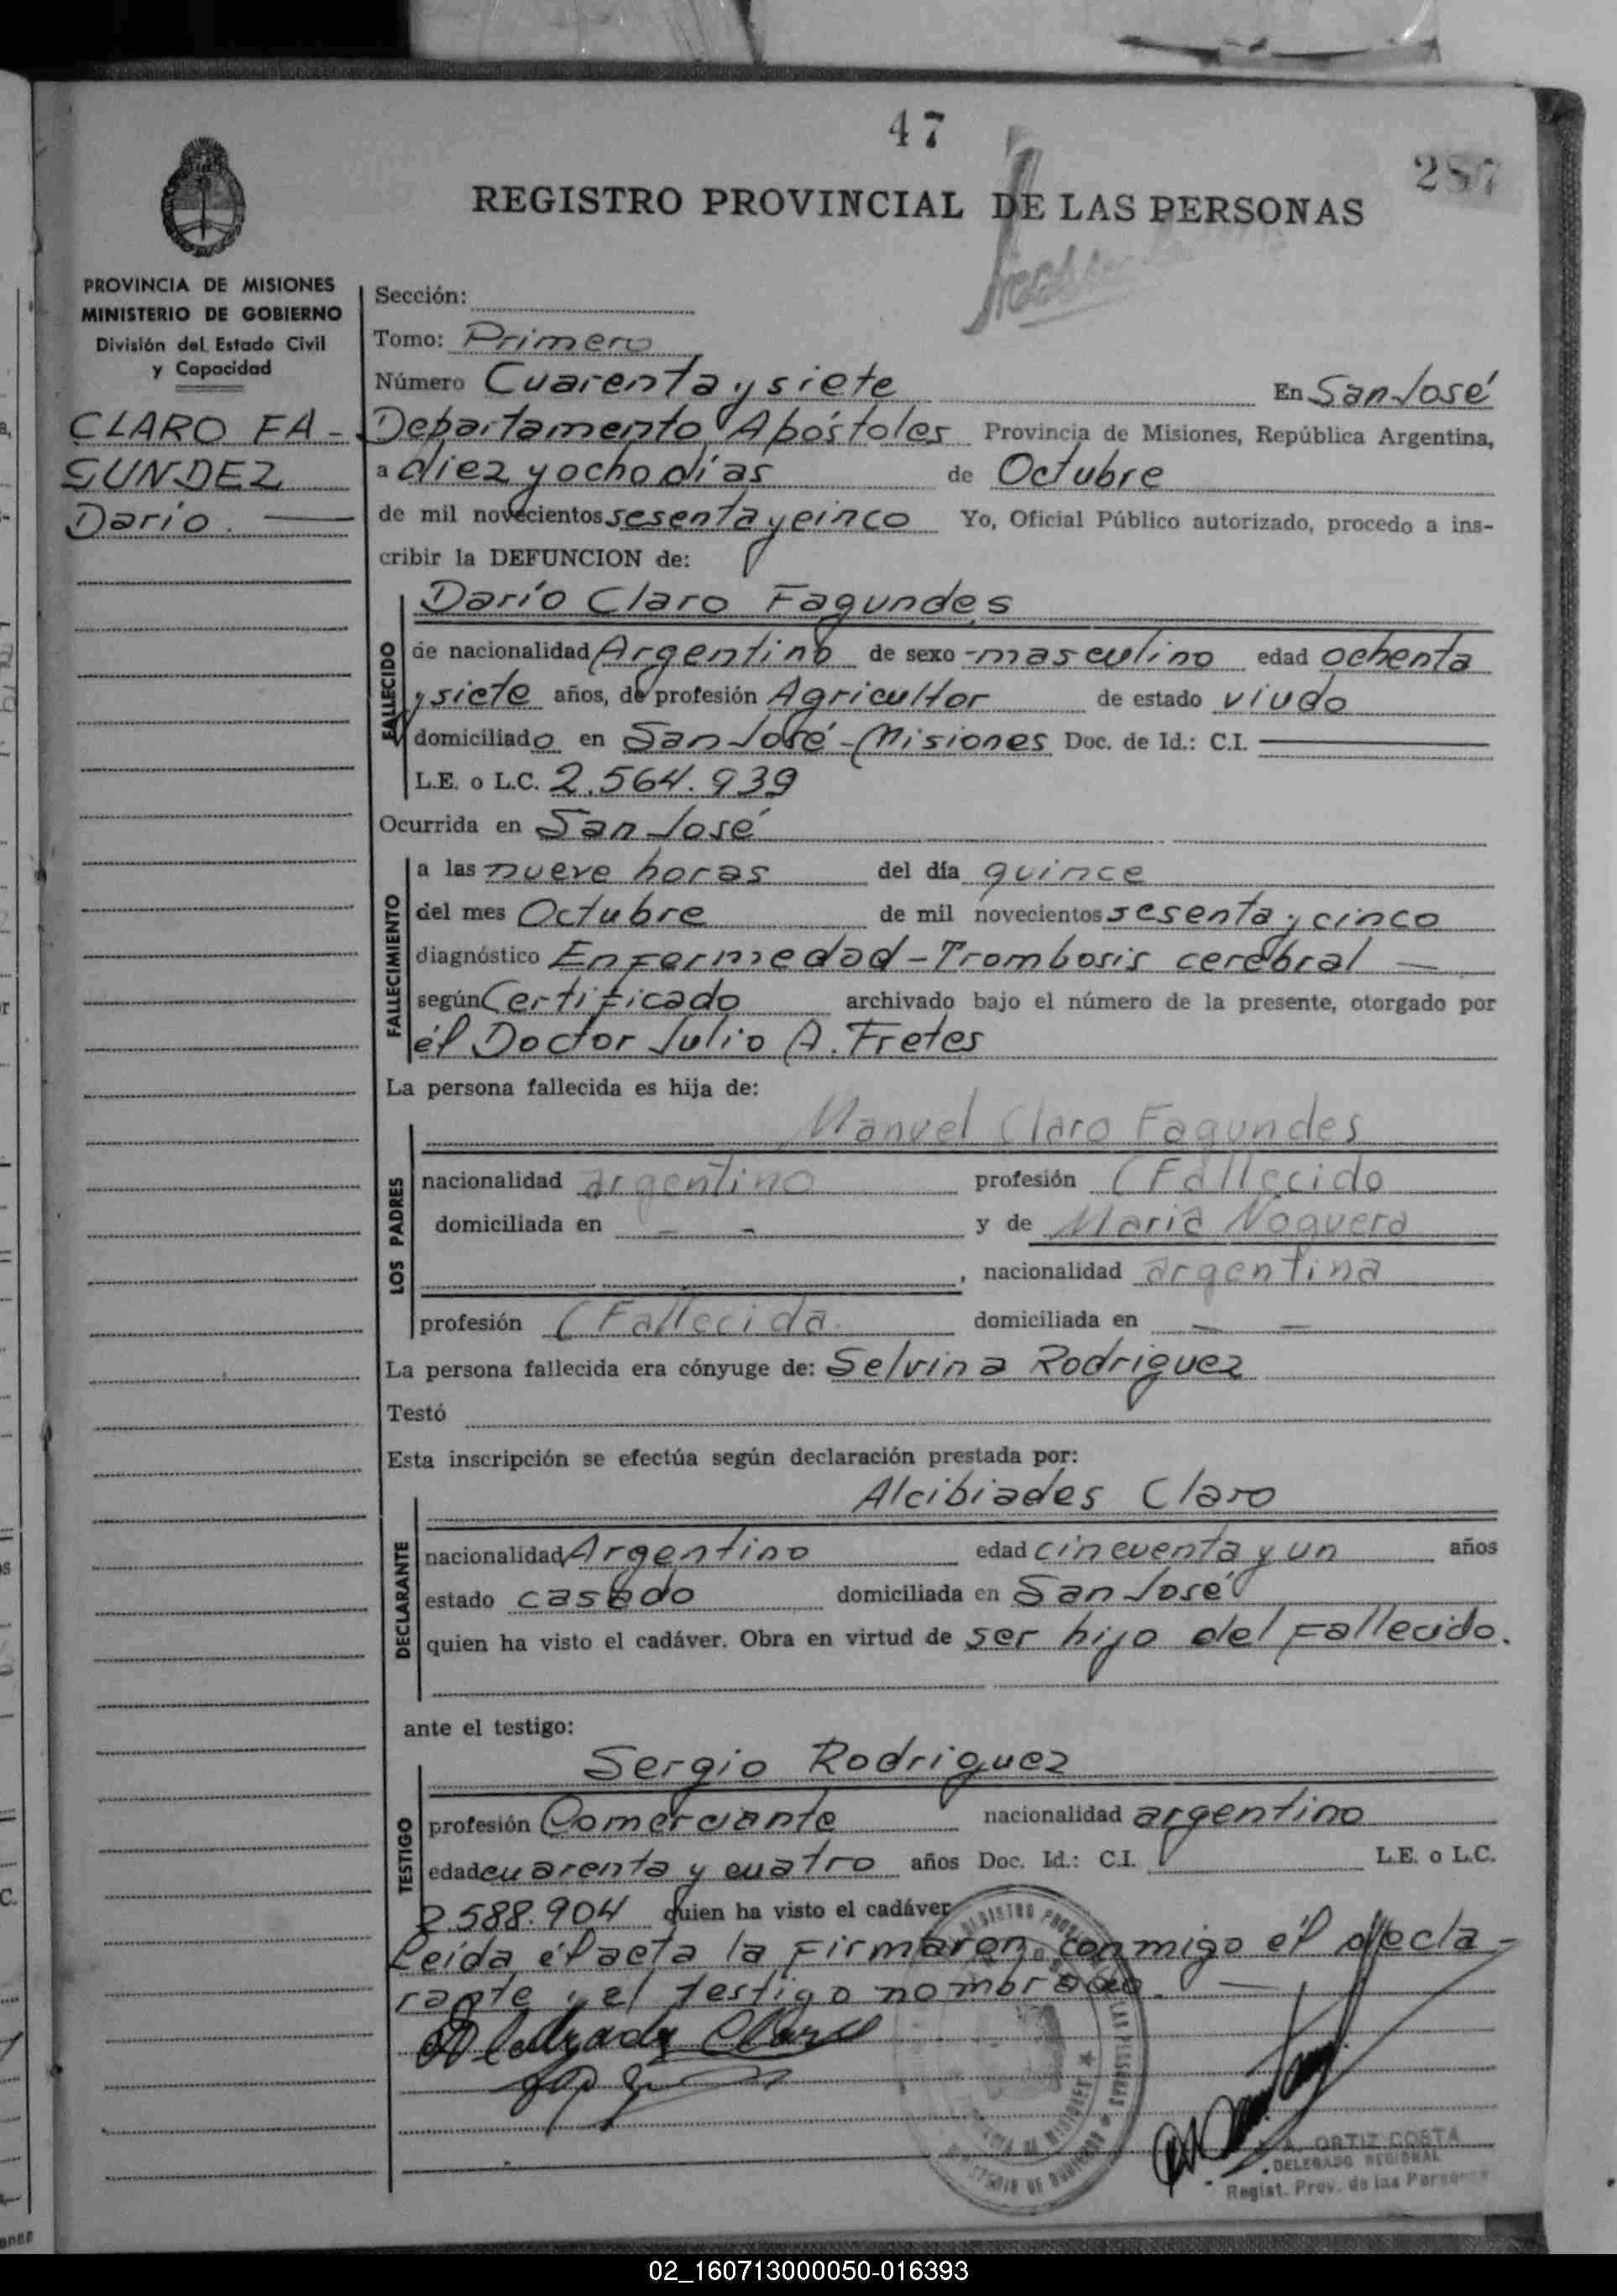 47
287
REGISTRO PROVINCIAL DE LAS PERSONAS
PROVINCIA DE MISIONES
MINISTERIO DE GOBIERNO
División del Estado Civil
y Capacidad
CLARO FA-
GUNDEZ
Darío.
Sección:
Tomo: Primero
Número Cuarenta y siete En San José
Departamento Apóstoles Provincia de Misiones, República Argentina,
a diez y ocho días de Octubre
de mil novecientos sesenta y cinco Yo, Oficial Público autorizado, procedo a ins-
cribir la DEFUNCION de:
FALLECIDO
Darío Claro Fagundes
de nacionalidad Argentino de sexo masculino edad ochenta
y siete años, de profesión Agricultor de estado viudo
domiciliado en San José - Misiones Doc. de Id.: C.I.
L.E. o L.C. 2.564.939
Ocurrida en San José
FALLECIMIENTO
a las nueve horas del día quince
del mes Octubre de mil novecientos sesenta y cinco
diagnóstico Enfermedad - Trombosis cerebral —
según Certificado archivado bajo el número de la presente, otorgado por
él Doctor Julio A. Fretes
La persona fallecida es hija de:
LOS PADRES
Manuel Claro Fagundes
nacionalidad argentino profesión (Fallecido
domiciliada en - - y de María Noguera
, nacionalidad argentina
profesión (Fallecida domiciliada en - -
La persona fallecida era cónyuge de: Selvina Rodriguez
Testó
Esta inscripción se efectúa según declaración prestada por:
DECLARANTE
Alcibiades Claro
nacionalidad Argentino edad cincuenta y un años
estado casado domiciliada en San José
quien ha visto el cadáver. Obra en virtud de ser hijo del fallecido.
ante el testigo:
TESTIGO
Sergio Rodriguez
profesión Comerciante nacionalidad argentino
edad cuarenta y cuatro años Doc. Id.: C.I. L.E. o L.C.
2.588.904 quien ha visto el cadáver
Leída él acta la firmaron conmigo él decla-
rante y el testigo nombrado. —
A. ORTIZ COSTA
DELEGADO REGIONAL
Regist. Prov. de las Personas
02_160713000050-016393